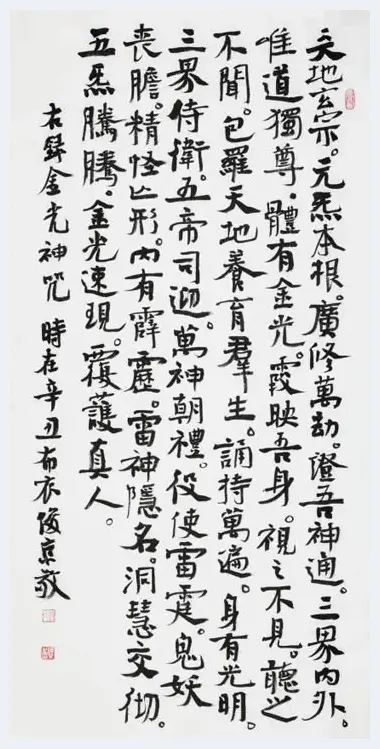 天地玄宗。元炁本根。廣修萬劫。澄吾神通。三界内外。
唯道獨尊。體有金光。霞映吾身。視之不見。聽之
不聞。包羅天地養育羣生。誦持萬遍。身有光明。
三界侍衛。五帝司迎。萬神朝禮。役使雷霆。鬼妖
喪膽。精怪亾形。内有霹靂。雷神隱名。洞慧交彻。
五炁騰騰。金光速現。覆護真人。
右錄金光神咒 時在辛丑布衣俊京敬